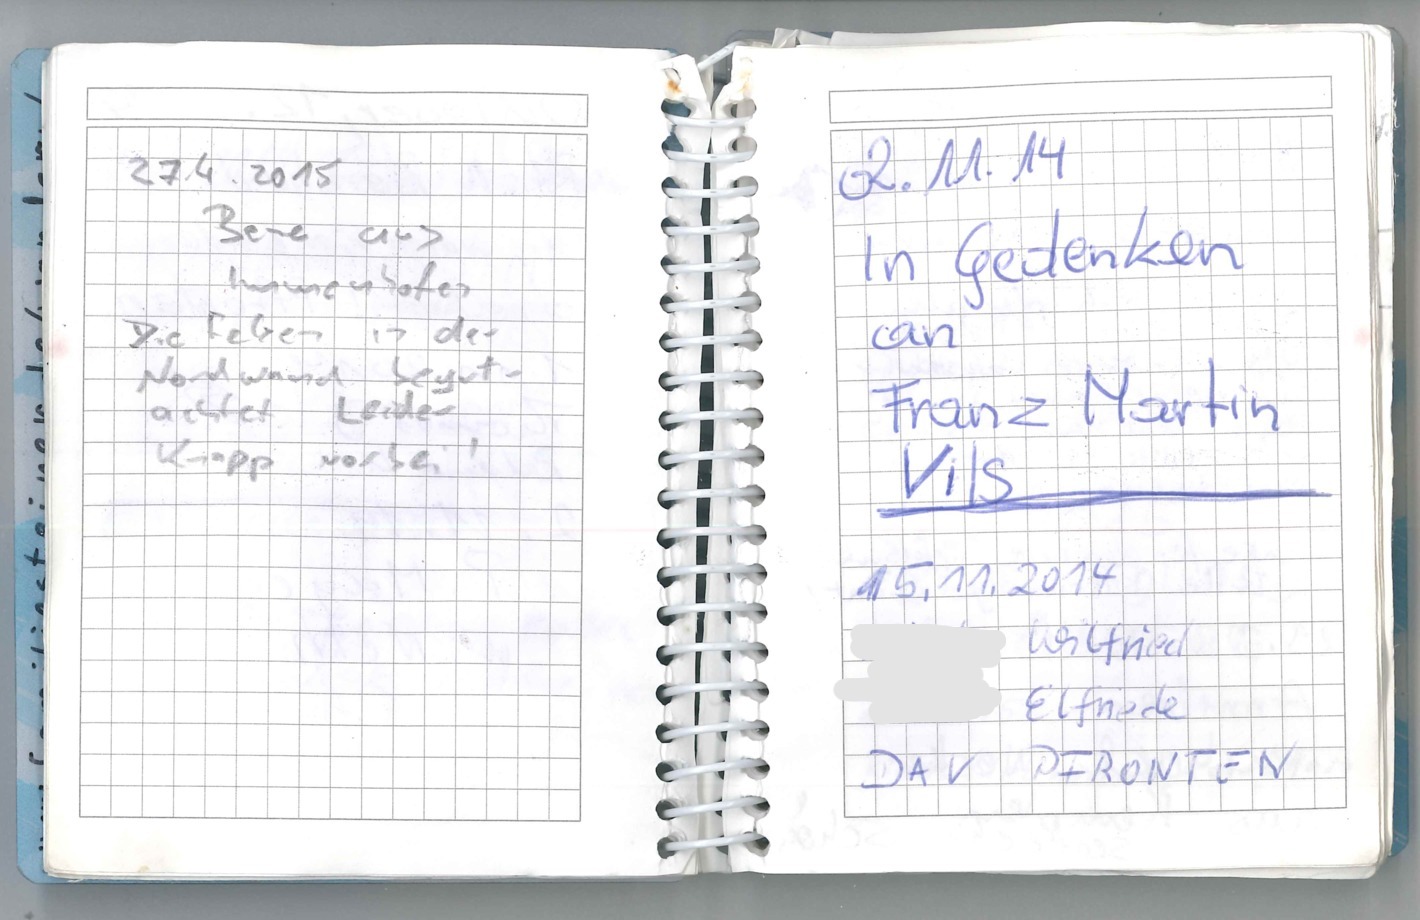 27.4.2015
Bene aus
Immenhofen
Die Felsen in der
Nordwand begut-
achtet Leider
Knapp vorbei!
2.11.14
In Gedenken
an
Franz Martin
Vils
15.11.2014
Wilfried
Elfriede
DAV PFRONTEN